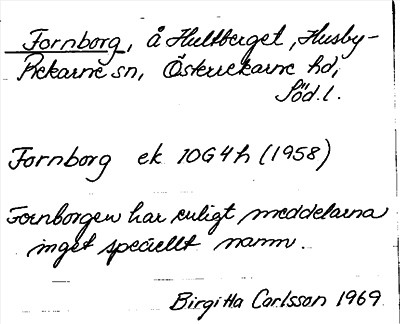 Fornborg, å Hultberget, Husby-
Rekarne sn, Österrekarne hd,
Söd. l.
Fornborg ek 10G4h (1958)
Fornborgen har enligt meddelarna
inget speciellt namn.
Birgitta Carlsson 1969